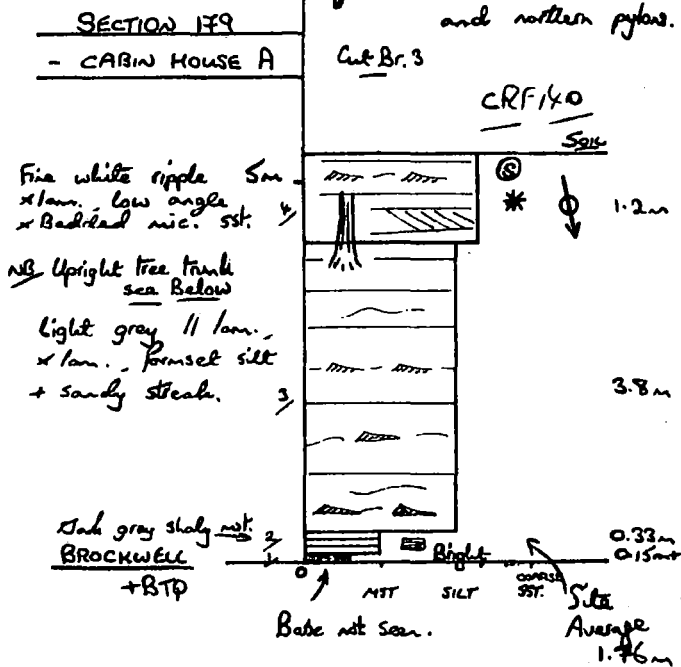 SECTION 179
- CABIN HOUSE A
and northern pylons.
Cut Br. 3
CRF 140
Soil
Fine white ripple
x lam. low angle
x Bedded mic. sst.
5m
4
S
*
1.2m
NB Upright tree trunk
see Below
Light grey // lam.,
x lam., formset silt
+ sandy streak.
3
3.8m
Dark grey shaly mst.
2
0.33m
BROCKWELL
1
Bright
0.15m+
+BTQ
0
MST
SILT
COARSE
SST.
Base not seen.
Site
Average
1.76m